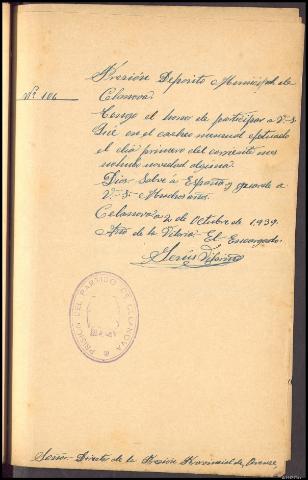 Presión Deposito Municipal de
Nº 106
Celanova.
Tengo el honor de participar a V. S.
Que en el cacheo mensual efectuado
el dia primero del corriente mes
novedad
Dios salve á España y guarde a
V. S. Muchos años.
Celanova 2 de Octubre de 1939.
Año de la Vitoria El Encargado.
Jesús
PRISION DEL PARTIDO DE CELANOVA
Señor Director de la Presión Provincial de, Orense,